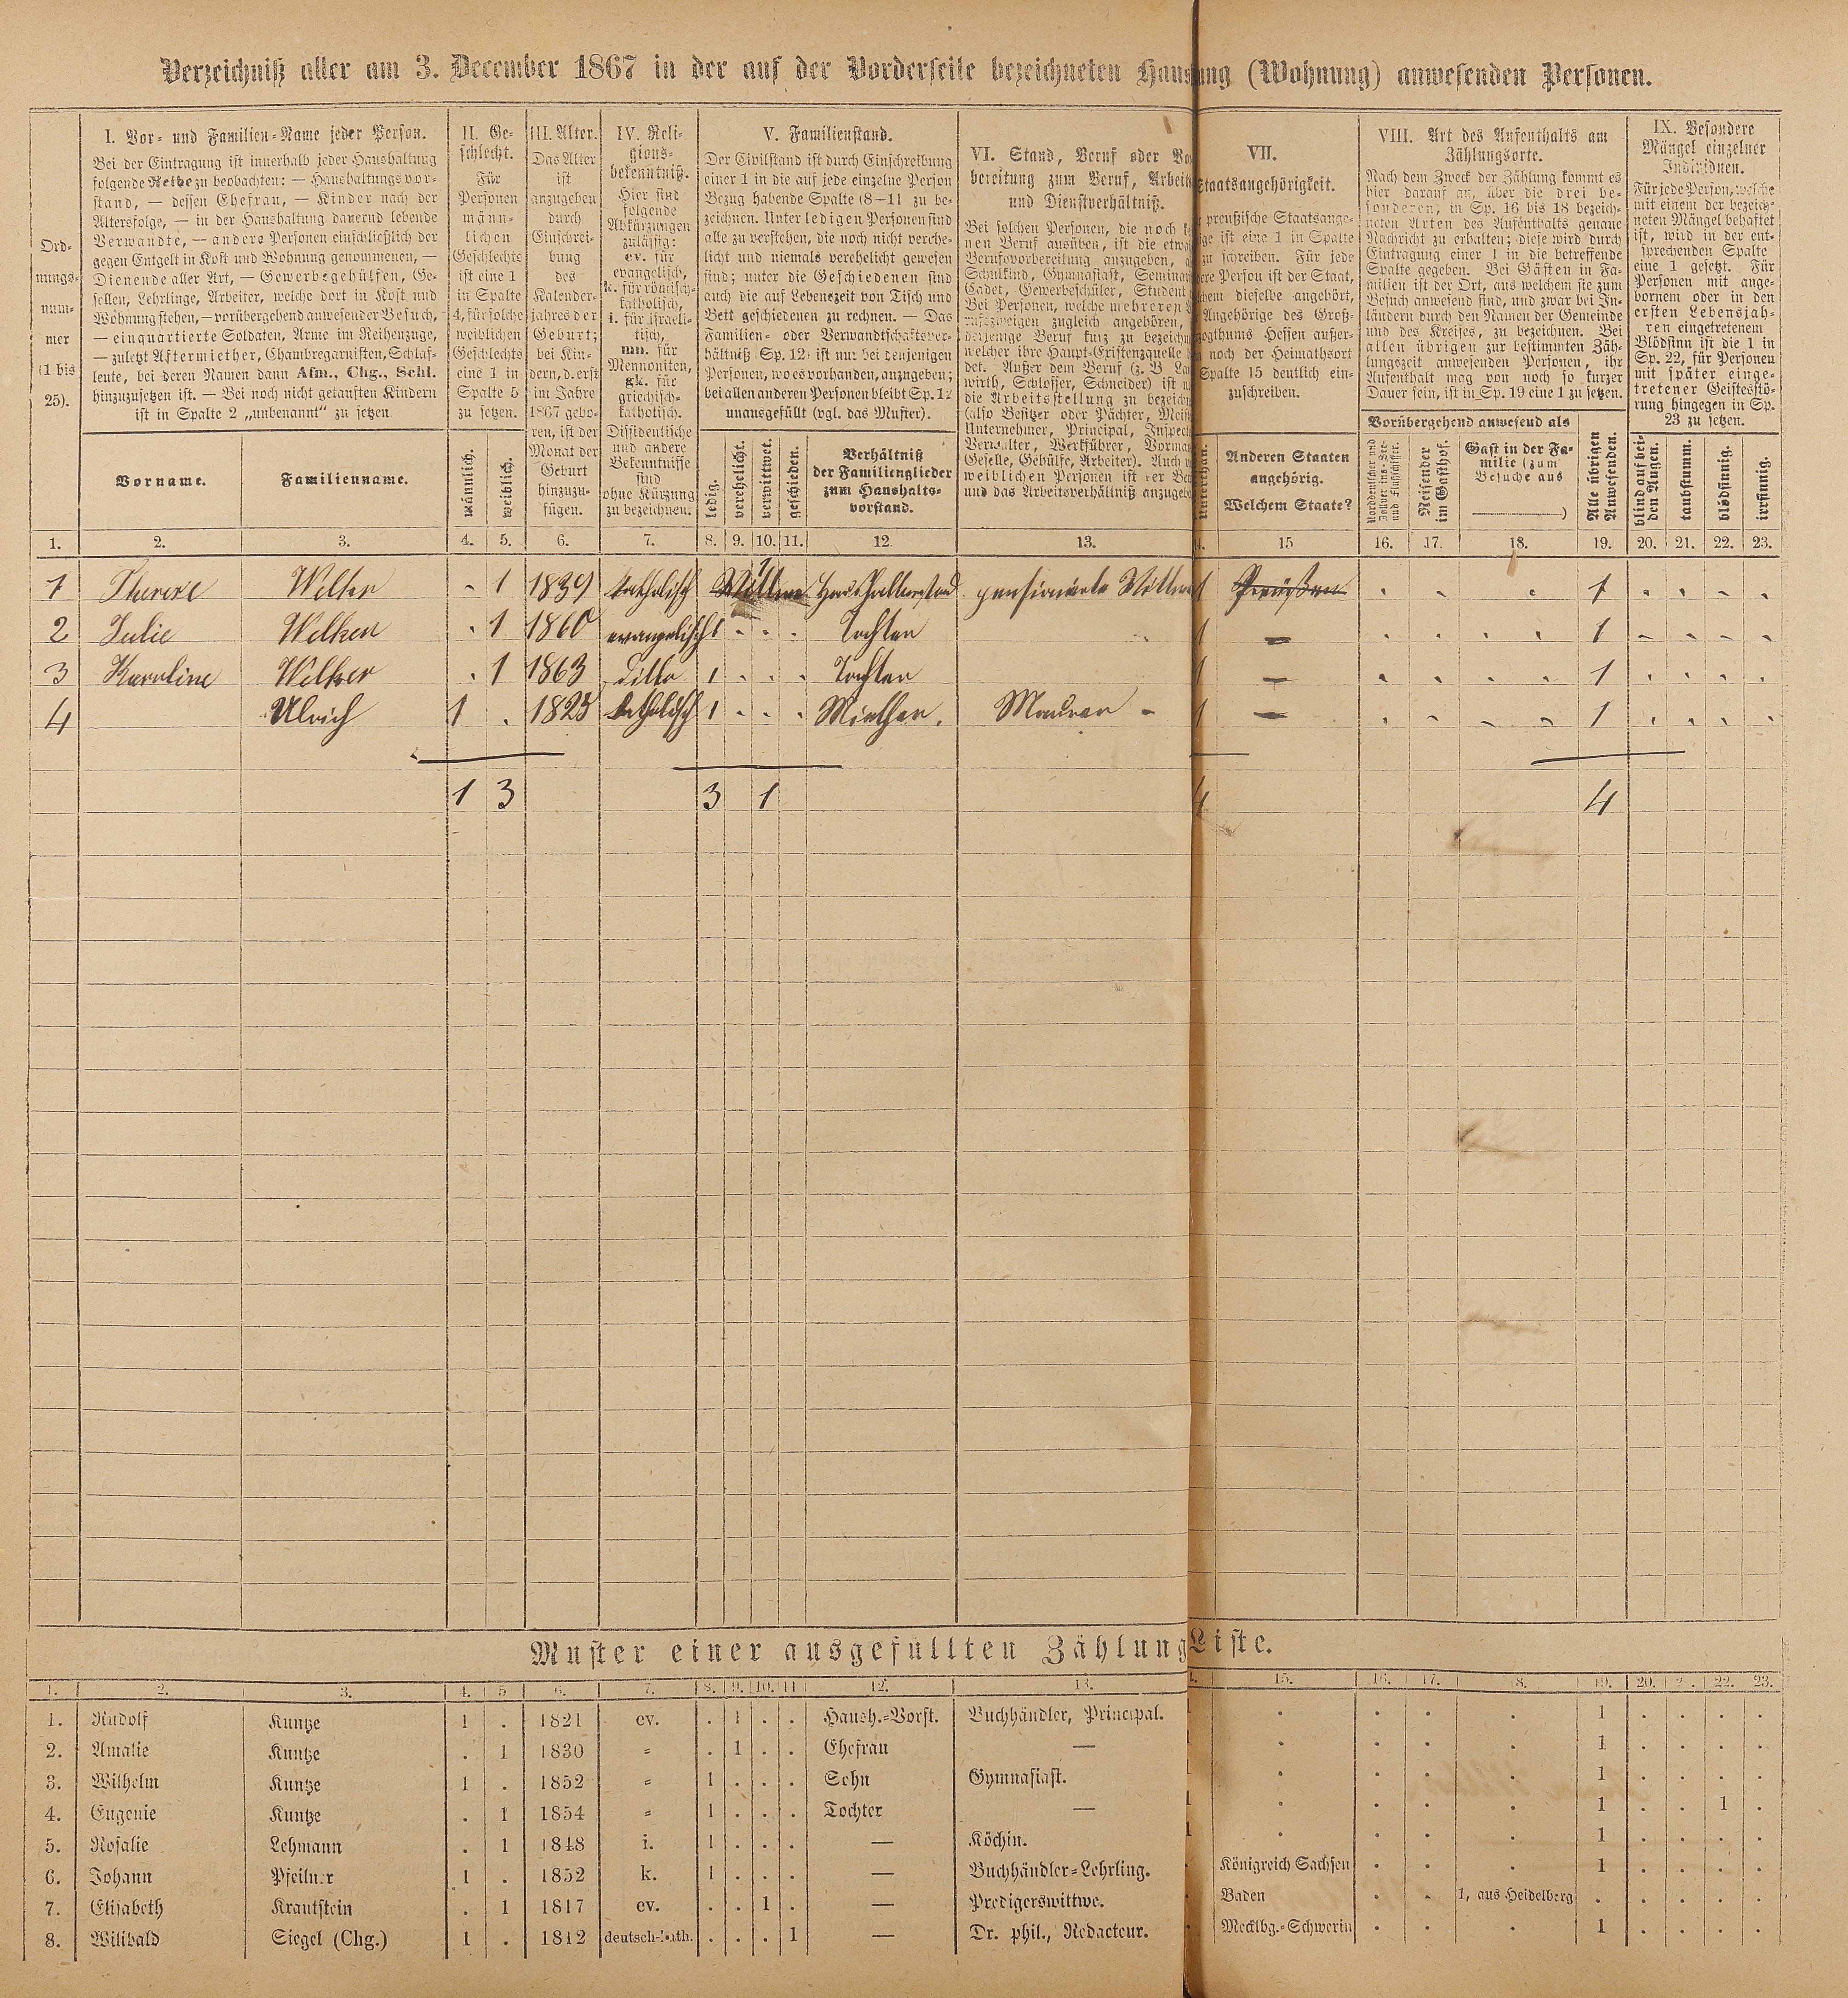 Verzeichniß aller am 3. December 1867 in der auf der Vorderseite bezeichneten Hausung (Wohnung) anwesenden Personen.
Ord-
nungs-
num-
mer
(1 bis
25).
I. Vor- und Familien-Name jeder Person.
Bei der Eintragung ist innerhalb jeder Haushaltung
folgende Reihe zu beobachten: — Haushaltungsvor-
stand, — dessen Ehefrau, — Kinder nach der
Altersfolge, — in der Haushaltung dauernd lebende
Verwandte, — andere Personen einschließlich der
gegen Entgelt in Kost und Wohnung genommenen, —
Dienende aller Art, — Gewerbsgehülfen, Ge-
sellen, Lehrlinge, Arbeiter, welche dort in Kost und
Wohnung stehen, — vorübergehend anwesender Besuch,
— einquartierte Soldaten, Arme im Reihenzuge,
— zuletzt Aftermiether, Chambregarnisten, Schlaf-
leute, bei deren Namen dann Afm., Chg., Schl.
hinzuzusetzen ist. — Bei noch nicht getauften Kindern
ist in Spalte 2 „unbenannt“ zu setzen
Vorname.
Familienname.
II. Ge-
schlecht.
Für
Personen
männ-
lichen
Geschlechts
ist eine 1
in Spalte
4, für solche
weiblichen
Geschlechts
eine 1 in
Spalte 5
zu setzen.
männlich.
weiblich.
III. Alter.
Das Alter
ist
anzugeben
durch
Einschrei-
bung
des
Kalender-
jahres der
Geburt;
bei Kin-
dern, d. erst
im Jahre
1867 gebo-
ren, ist der
Monat der
Geburt
hinzuzu-
fügen.
IV. Reli-
gions-
bekenntniß.
Hier sind
folgende
Abkürzungen
zulässig:
ev. für
evangelisch,
k. für römisch-
katholisch,
i. für israeli-
tisch,
mn. für
Mennoniten,
gk. für
griechisch-
katholisch.
Dissidentische
und andere
Bekenntnisse
sind
ohne Kürzung
zu bezeichnen.
V. Familienstand.
Der Civilstand ist durch Einschreibung
einer 1 in die auf jede einzelne Person
Bezug habende Spalte (8–11) zu be-
zeichnen. Unter ledigen Personen sind
alle zu verstehen, die noch nicht verehe-
licht und niemals verehelicht gewesen
sind; unter die Geschiedenen sind
auch die auf Lebenszeit von Tisch und
Bett geschiedenen zu rechnen. — Das
Familien- oder Verwandtschaftsver-
hältniß (Sp. 12) ist nur bei denjenigen
Personen, wo es vorhanden, anzugeben;
bei allen anderen Personen bleibt Sp. 12
unausgefüllt (vgl. das Muster).
ledig.
verehelicht.
verwittwet.
geschieden.
Verhältniß
der Familienglieder
zum Haushalts-
vorstand.
VI. Stand, Beruf oder Vo
bereitung zum Beruf, Arbeits
und Dienstverhältniß.
Bei solchen Personen, die noch k
nen Beruf ausüben, ist die etwa
Berufsvorbereitung anzugeben,
Schulkind, Gymnasiast, Seminar
Cadet, Gewerbeschüler, Student
Bei Personen, welche mehreren
rufszweigen zugleich angehören,
derjenige Beruf kurz zu bezeichn
welcher ihre Haupt-Existenzquelle
det. Außer dem Beruf (z. B. La
wirth, Schlosser, Schneider) ist
die Arbeitsstellung zu bezeichn
(also Besitzer oder Pächter, Meist
Unternehmer, Principal, Inspect
Verwalter, Werkführer, Vorma
Geselle, Gehülfe, Arbeiter). Auch
weiblichen Personen ist der Be
und das Arbeitsverhältniß anzugeb
VII.
Staatsangehörigkeit.
preußische Staatsange-
ge ist eine 1 in Spalte
zu schreiben. Für jede
ere Person ist der Staat,
chem dieselbe angehört,
Angehörige des Groß-
zogthums Hessen außer-
noch der Heimathsort
Spalte 15 deutlich ein-
zuschreiben.
Anderen Staaten
angehörig.
Welchem Staate?
VIII. Art des Aufenthalts am
Zählungsorte.
Nach dem Zweck der Zählung kommt es
hier darauf an, über die drei be-
sonderen, in Sp. 16 bis 18 bezeich-
neten Arten des Aufenthalts genaue
Nachricht zu erhalten; diese wird durch
Eintragung einer 1 in die betreffende
Spalte gegeben. Bei Gästen in Fa-
milien ist der Ort, aus welchem sie zum
Besuch anwesend sind, und zwar bei In-
ländern durch den Namen der Gemeinde
und des Kreises, zu bezeichnen. Bei
allen übrigen zur bestimmten Zäh-
lungszeit anwesenden Personen, ihr
Aufenthalt mag von noch so kurzer
Dauer sein, ist in Sp. 19 eine 1 zu setzen.
Vorübergehend anwesend als
Norddeutscher und
Zollver.ins-See-
und Flußschiffer.
Reisender
im Gasthof.
Gast in der Fa-
milie (zum
Besuche aus
)
Alle übrigen
Anwesenden.
IX. Besondere
Mängel einzelner
Individuen.
Für jede Person, welche
mit einem der bezeich-
neten Mängel behaftet
ist, wird in der ent-
sprechenden Spalte
eine 1 gesetzt. Für
Personen mit ange-
bornem oder in den
ersten Lebensjah-
ren eingetretenem
Blödsinn ist die 1 in
Sp. 22, für Personen
mit später einge-
tretener Geistesstö-
rung hingegen in Sp.
23 zu setzen.
blind auf bei-
den Augen.
taubstumm.
blödsinnig.
irrsinnig.
1. 2. 3. 4. 5. 6. 7. 8. 9. 10. 11. 12. 13. 4. 15 16. 17. 18. 19. 20. 21. 22. 23.
1 Therese Welker - 1 1839 katholisch Wittwe 1 Haushaltvorstand pensionirte Wittwe 1 Preußen . . . 1 . . . .
2 Julie Welker . 1 1860 evangelisch 1 . . . Tochter 1 — . . . . 1 . . . .
3 Karoline Welker . 1 1863 ditto 1 . . . Tochter 1 — . . . . 1 . . . .
4 Ulrich 1 . 1823 katholisch 1 . . . Miether. Maurer - 1 — . . . . 1 . . . .
1 3 3 1 4 4
Muster einer ausgefüllten Zählungs Liste.
1. 2. 3. 4. 5 6. 7. 8. 9. 10. 11 12. 13. 4. 15. 16. 17. 18. 19. 20. 2 . 22. 23.
1. Rudolf Kuntze 1 . 1821 ev. . 1 . . Haush.-Vorst. Buchhändler, Principal. 1 . . . . 1 . . . .
2. Amalie Kuntze . 1 1830 " . 1 . . Ehefrau — . . . . 1 . . . .
3. Wilhelm Kuntze 1 . 1852 " 1 . . . Sohn Gymnasiast. 1 . . . . 1 . . . .
4. Eugenie Kuntze . 1 1854 " 1 . . . Tochter — 1 . . . . 1 . . 1 .
5. Rosalie Lehmann . 1 1848 i. 1 . . . — Köchin. 1 . . . . 1 . . . .
6. Johann Pfeilner 1 . 1852 k. 1 . . . — Buchhändler-Lehrling. . Königreich Sachsen . . . 1 . . . .
7. Elisabeth Krautstein . 1 1817 ev. . . 1 . — Predigerswittwe. . Baden . . 1, aus Heidelberg . . . . .
8. Wilibald Siegel (Chg.) 1 . 1812 deutsch-kath. . . . 1 — Dr. phil., Redacteur. . Mecklbg.-Schwerin . . . 1 . . . .